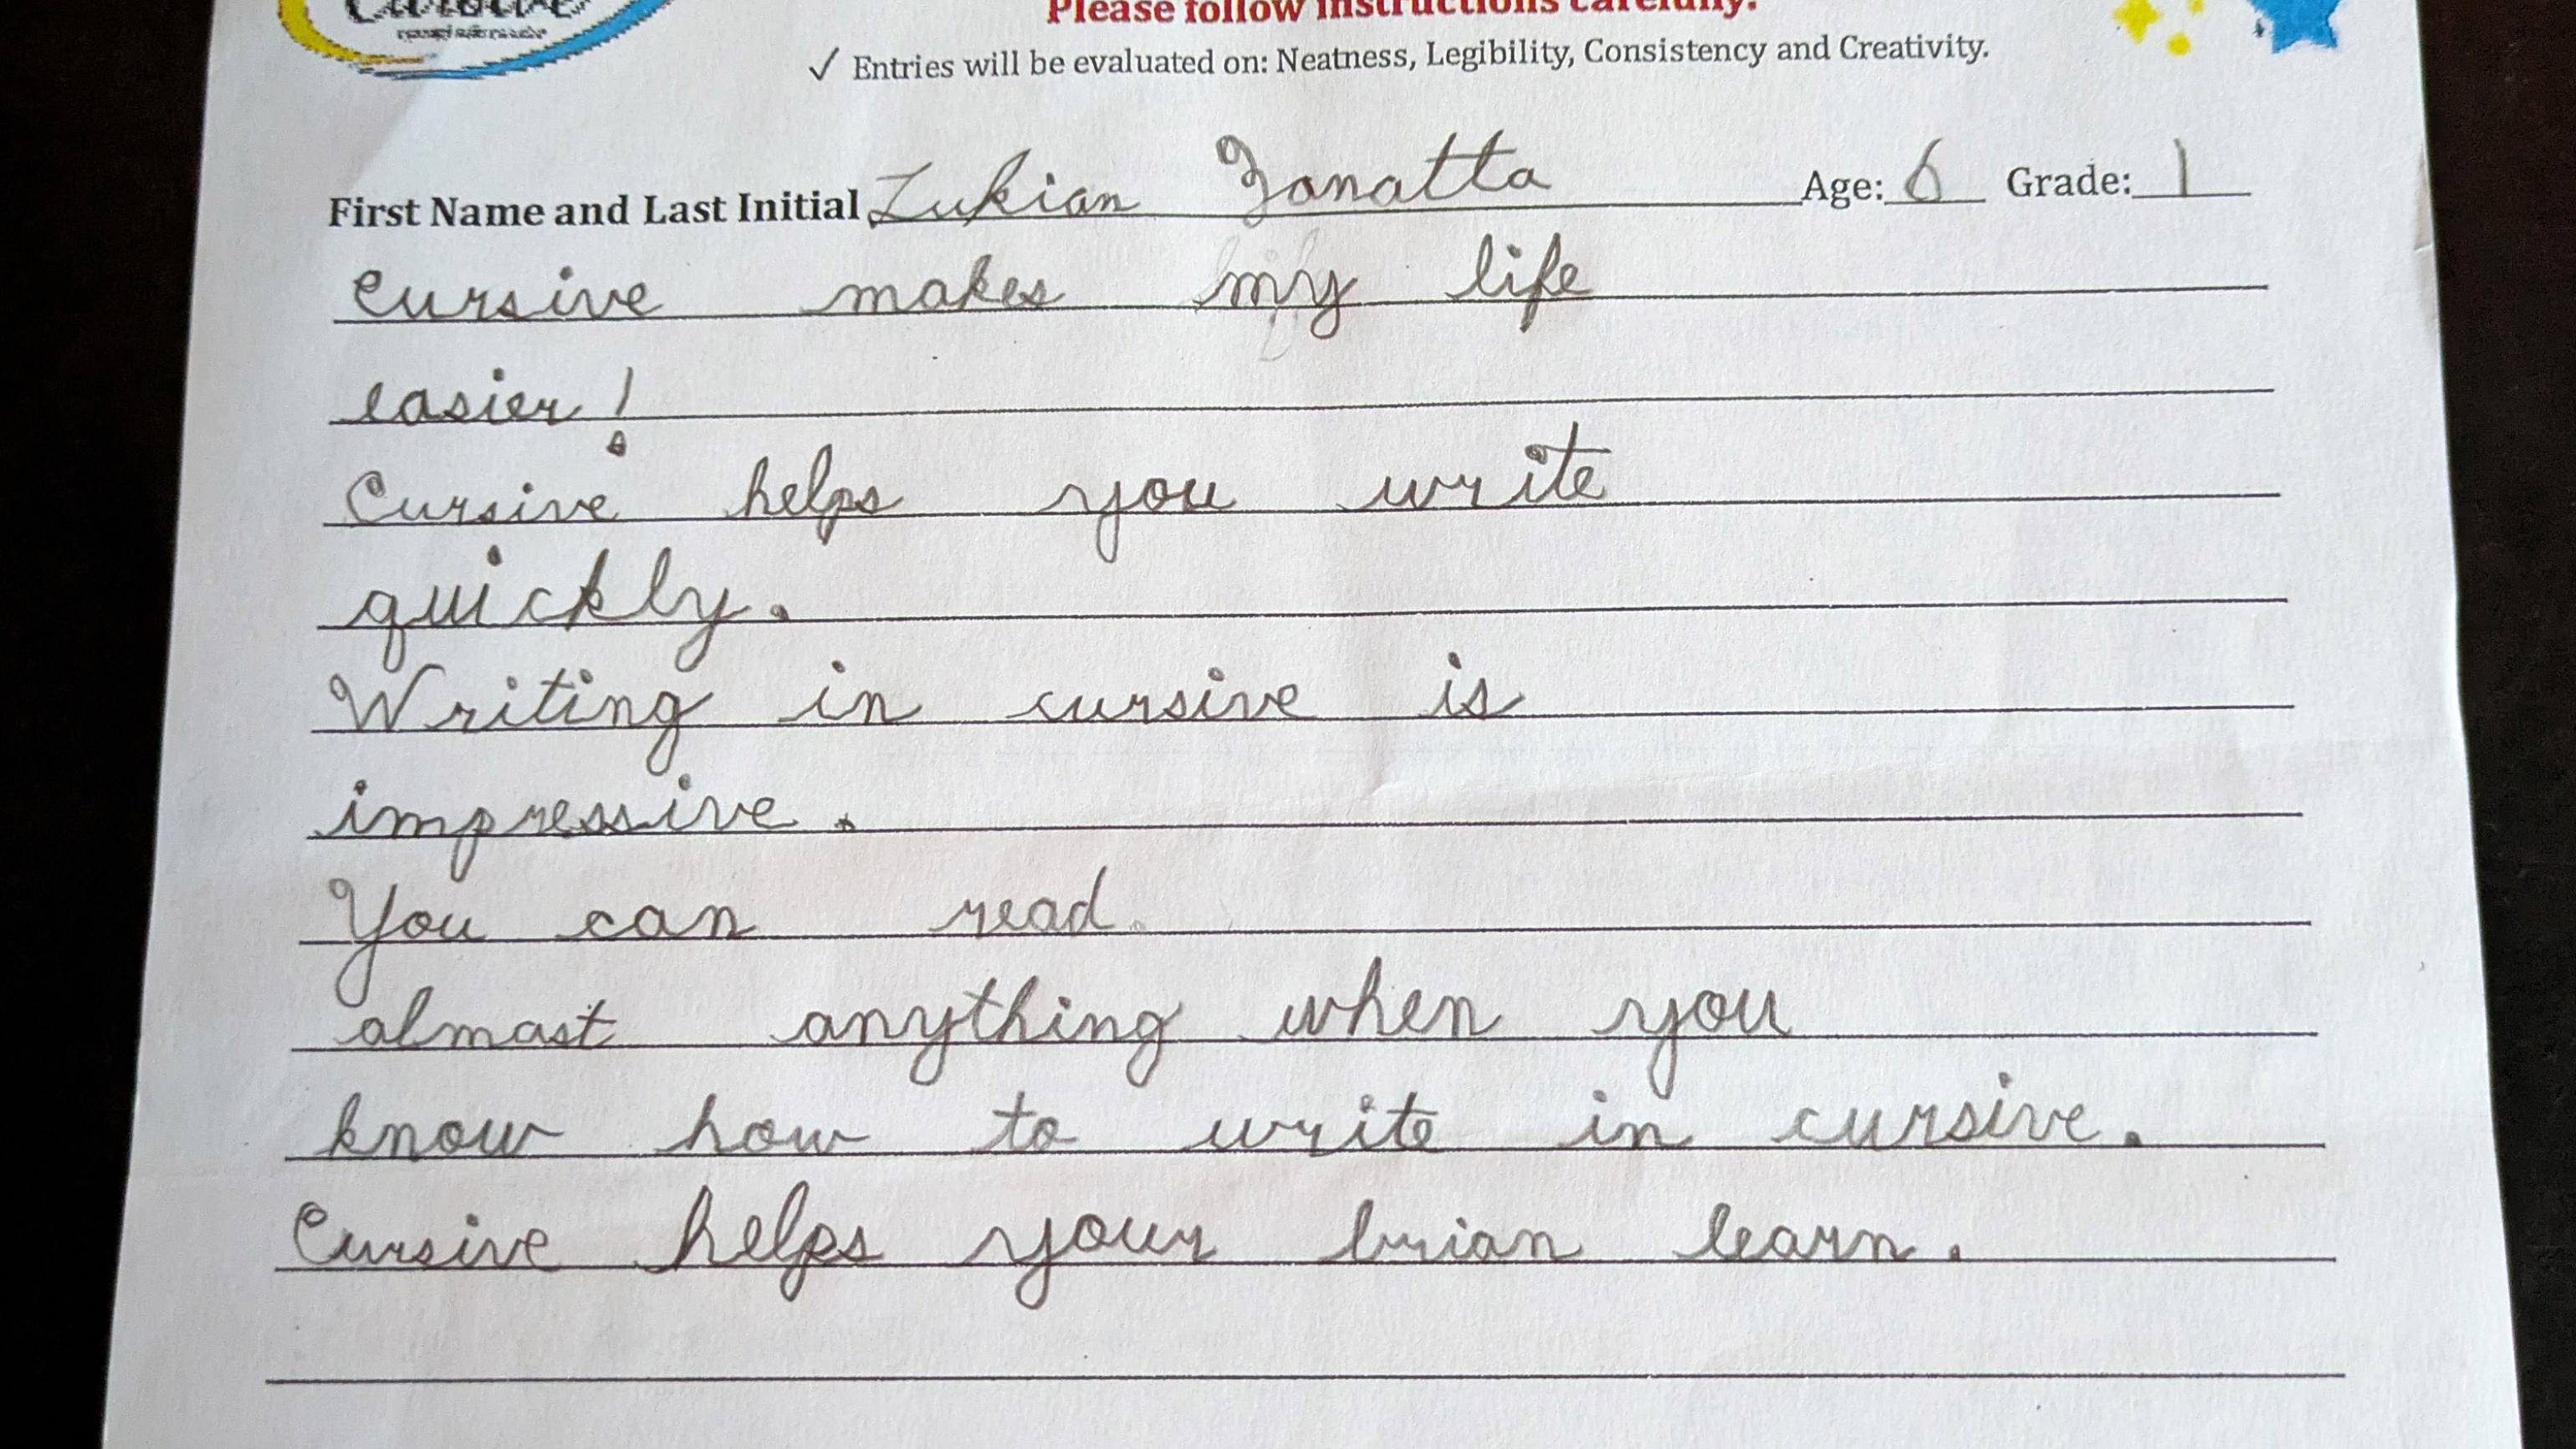 Cursive
Please follow instructions carefully.
✓ Entries will be evaluated on: Neatness, Legibility, Consistency and Creativity.
First Name and Last Initial Lukian Zanatta Age: 6 Grade: 1
Cursive makes my life
easier!
Cursive helps you write
quickly.
Writing in cursive is
impressive.
You can read
almost anything when you
know how to write in cursive.
Cursive helps your brian learn.